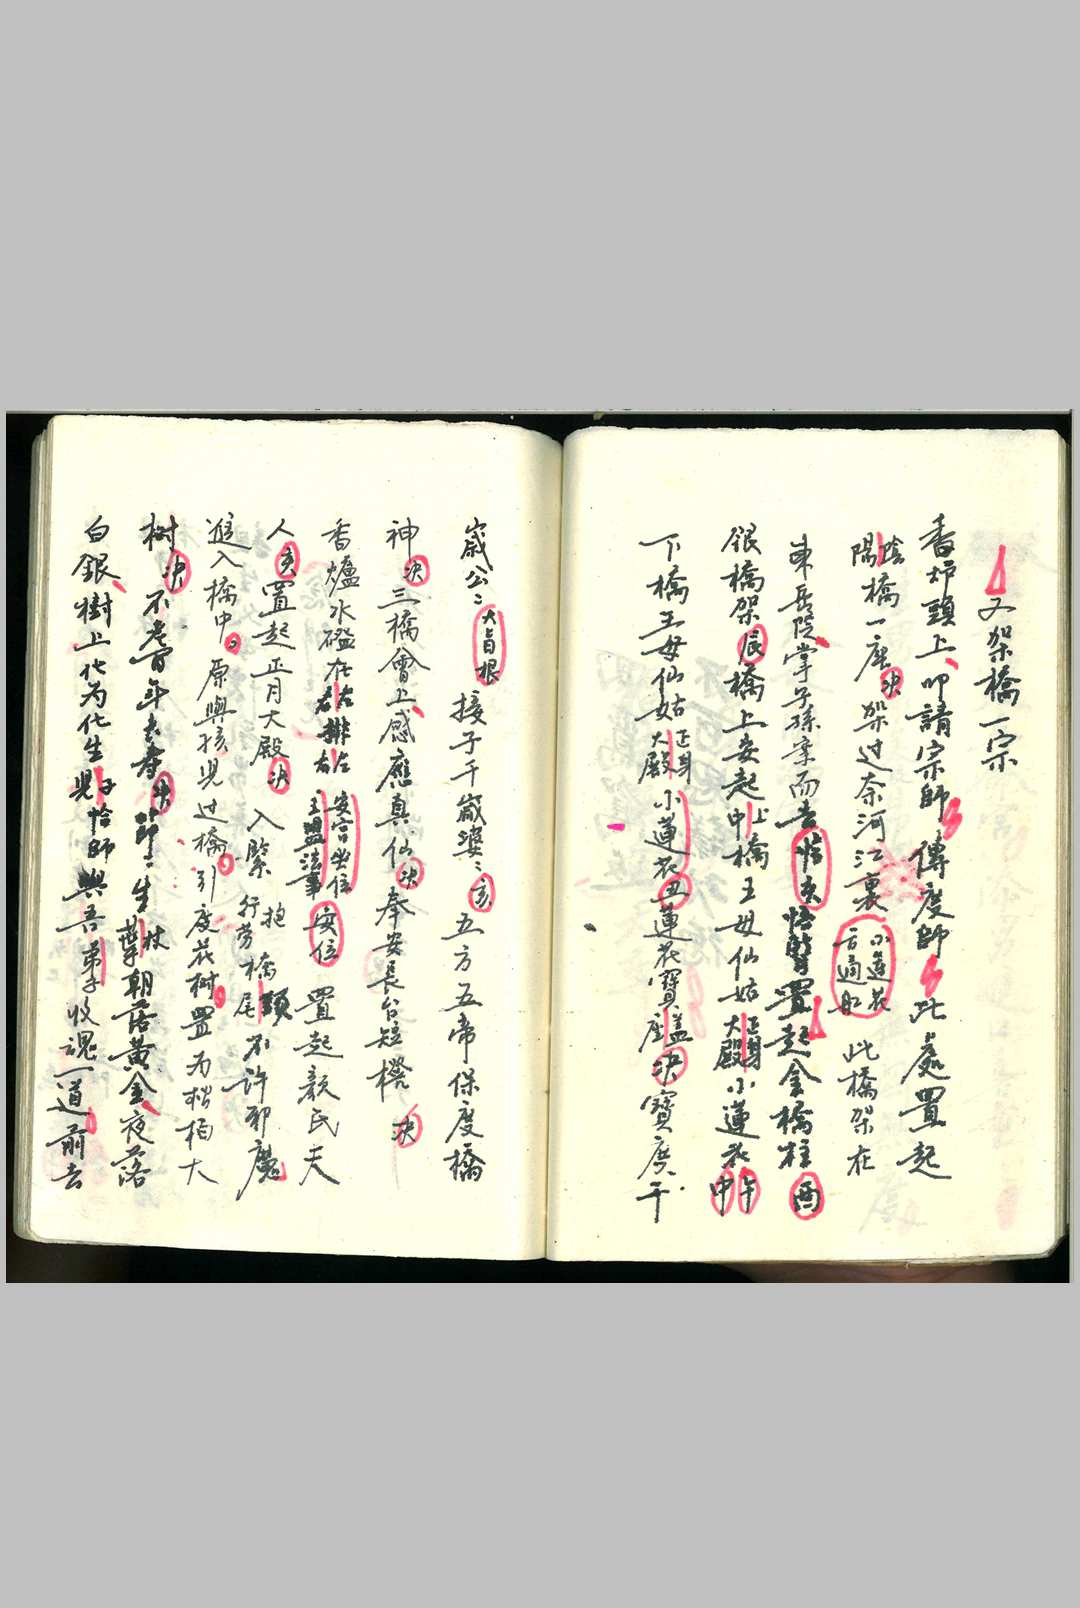 又架橋一宗
香炉頭上叩請宗師傳度師此處置起
陰陽橋一座决架过奈河江裏小蓮花此橋架在
東岳院掌子孫案而去置起金橋柱酉
銀橋架辰橋上安起上中橋王母仙姑正身大殿小蓮花午申
下橋王母仙姑正身大殿小蓮花丑蓮花寶蓋决寶座千
歲公〻接子千歲婆〻亥五方五帝保度橋
神决三橋會上感應真仙决奉安長台短櫈决
香爐水碗在左右排左右安宫坐位王盟法事安位置起顏氏夫
人亥置起正月大殿决入緊抱行劳橋頭尾不許邪魔
進入橋中原與孩兒过橋引度花樹置为松栢大
樹决不老百年去壽决節〻生枝葉朝落黄金夜落
白銀樹上化为花生兒子恰師與吾弟子收魂一道前去